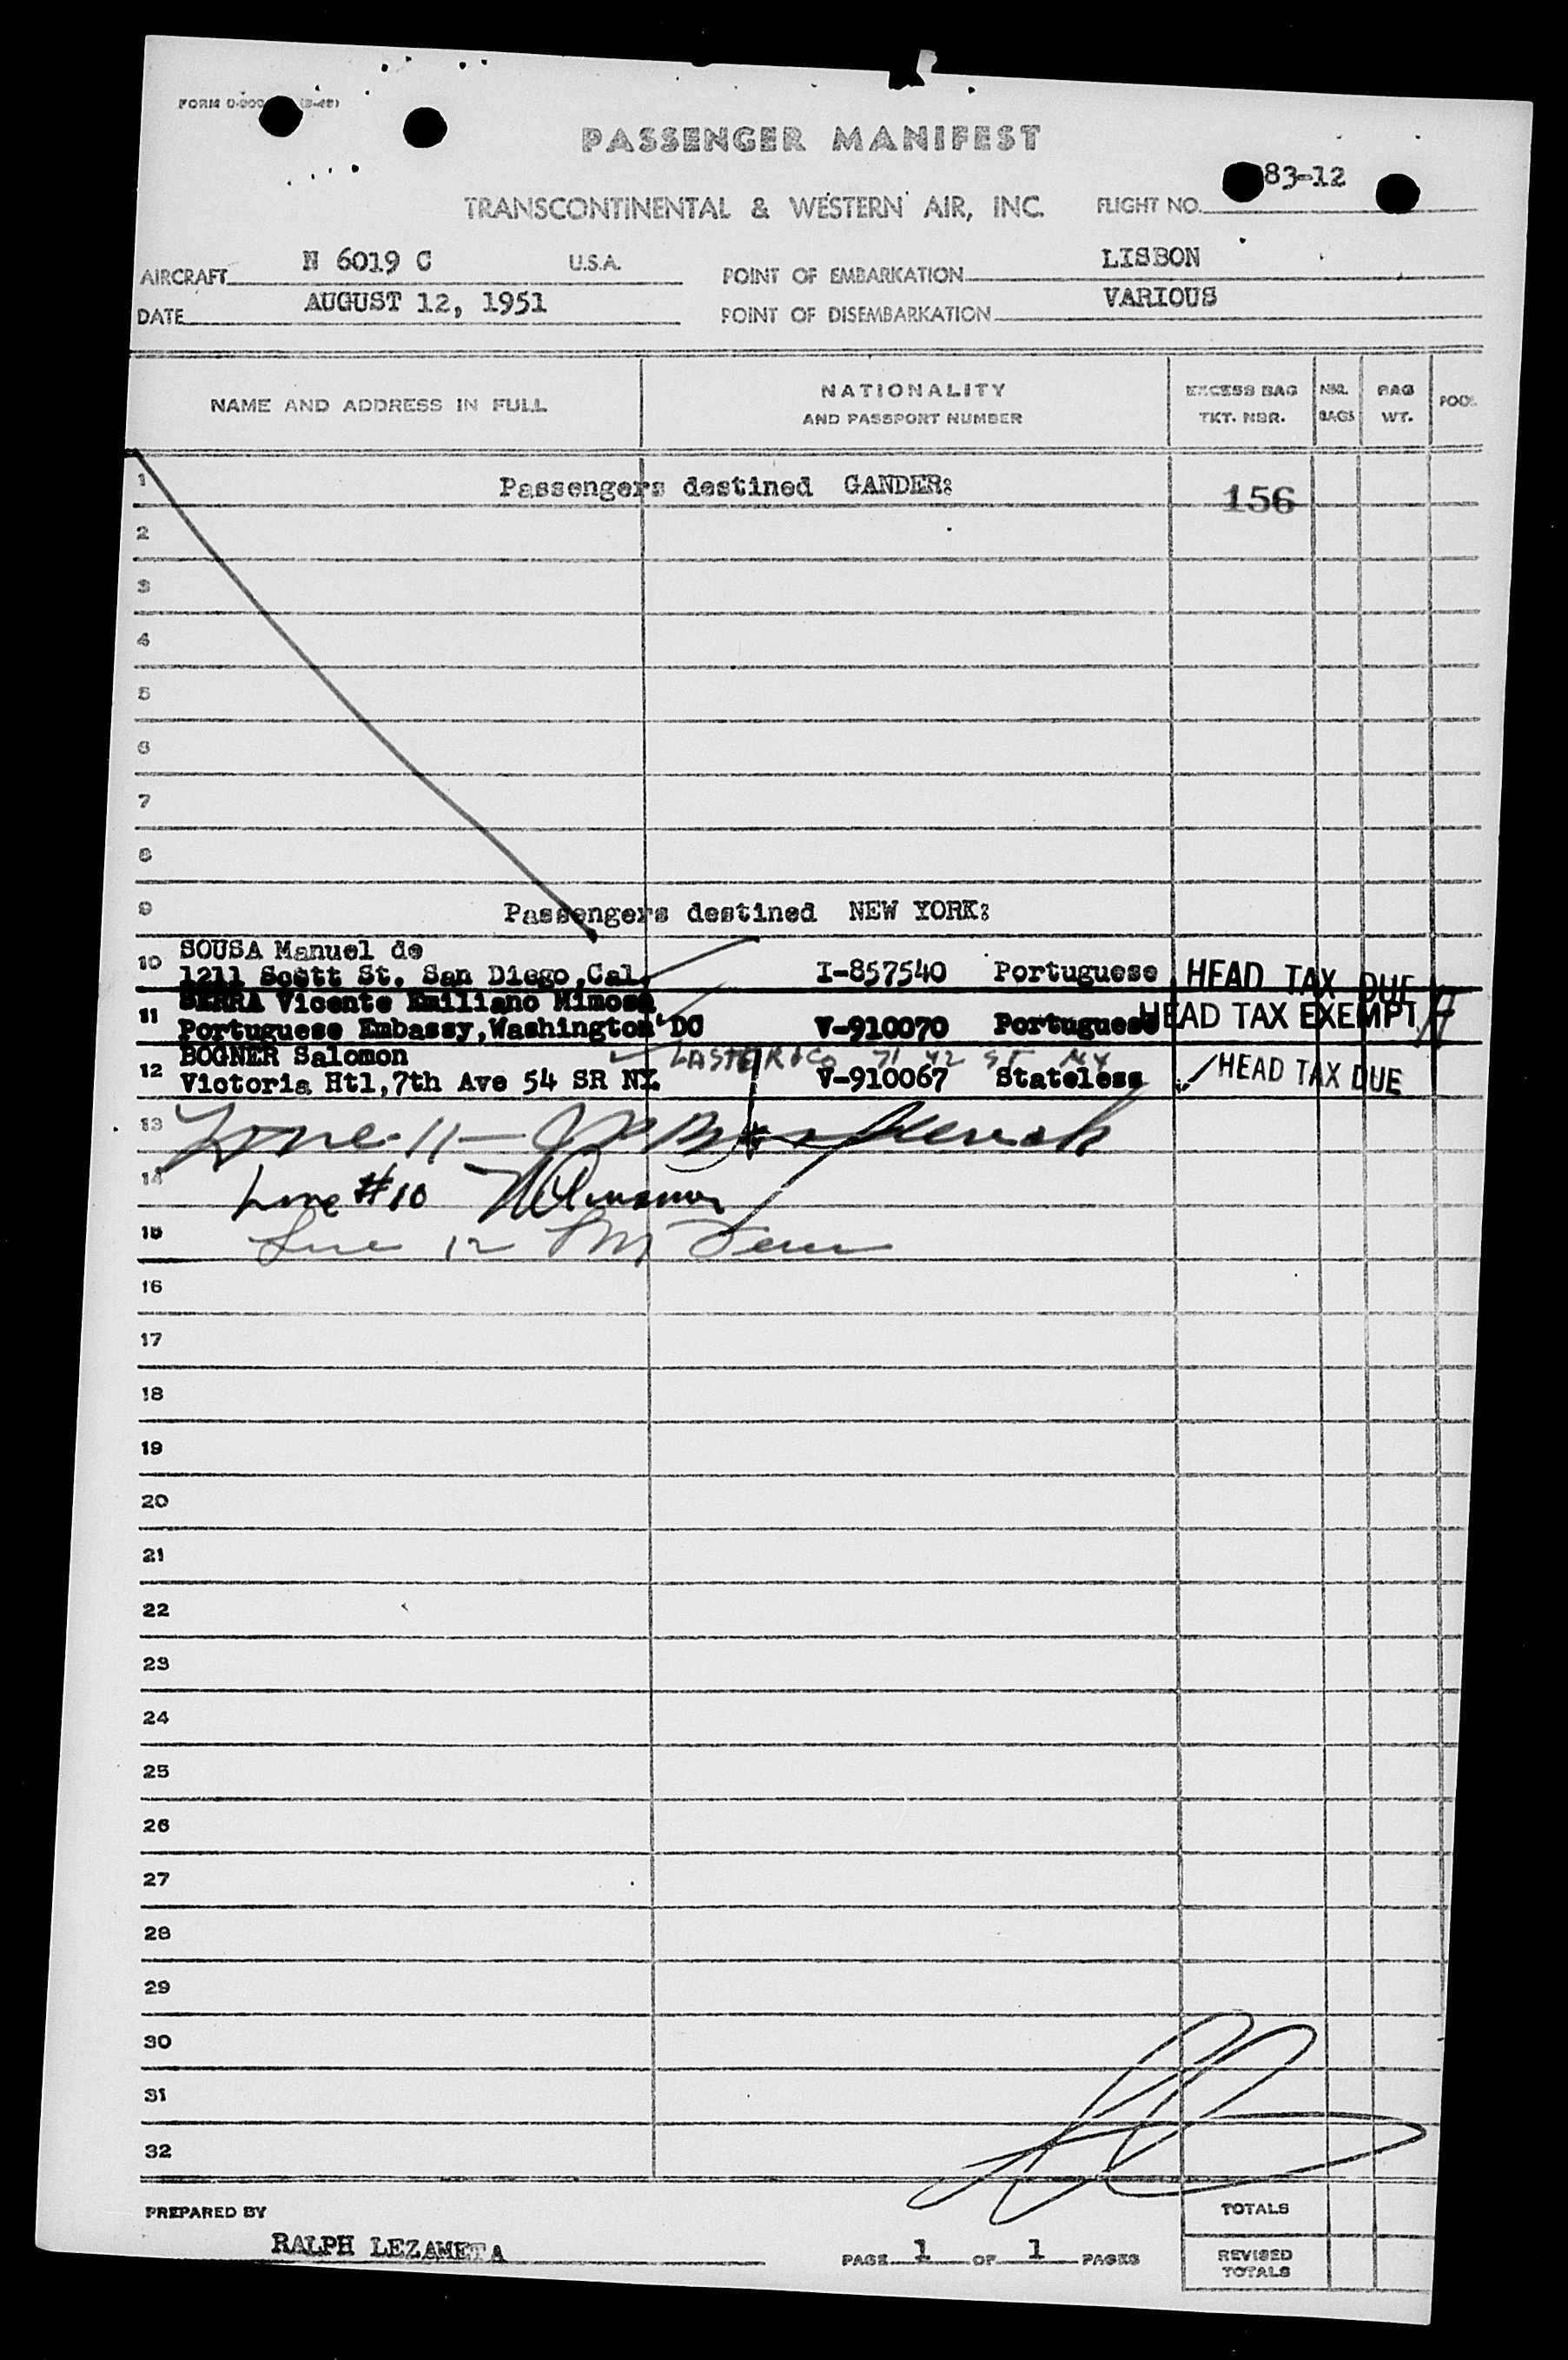 FORM (3-48)
PASSENGER MANIFEST
TRANSCONTINENTAL & WESTERN AIR, INC.
FLIGHT NO. 83-12
AIRCRAFT N 6019 C U.S.A. POINT OF EMBARKATION LISBON
DATE AUGUST 12, 1951 POINT OF DISEMBARKATION VARIOUS
NAME AND ADDRESS IN FULL
NATIONALITY
AND PASSPORT NUMBER
EXCESS BAG
TKT. NBR.
NBR.
BAGS
BAG
WT.
POOL
1 Passengers destined GANDER: 156
2
3
4
5
6
7
8
9 Passengers destined NEW YORK:
10 SOUSA Manuel de
1211 Scott St. San Diego,Cal. I-857540 Portuguese HEAD TAX DUE
11 SERRA Vicente Emiliano Mimosa
Portuguese Embassy,Washington DC V-910070 Portuguese HEAD TAX EXEMPT
12 BOGNER Salomon LASTER & Co 71 42 ST NY
Victoria Htl,7th Ave 54 SR NY. V-910067 Stateless HEAD TAX DUE
13 Line 11 —
14 Line #10
15 Line 12
16
17
18
19
20
21
22
23
24
25
26
27
28
29
30
31
32
PREPARED BY
RALPH LEZAMETA
PAGE 1 OF 1 PAGES
TOTALS
REVISED
TOTALS